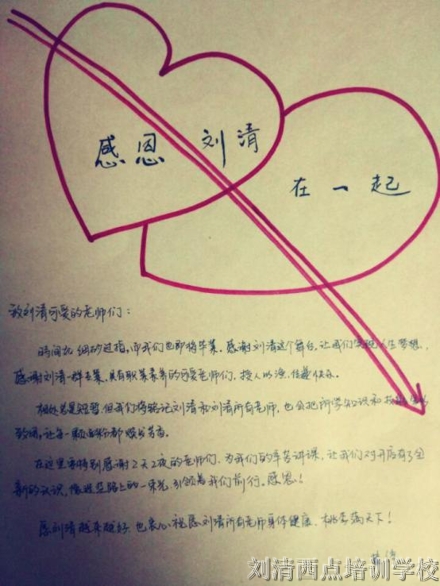 感恩刘清
在一起
致刘清可爱的老师们：
时间如细砂过指，而我们也即将毕业。感谢刘清这个舞台，让我们实现人生梦想，
感谢刘清一群专业，具有职业素养的可爱老师们，授人以渔，传递快乐。
相处总是短暂，但我们将铭记刘清和刘清所有老师，也会把所学知识和
的活，让每一颗
在这里要特别感谢2天2夜的老师们，为我们的辛苦讲课，让我们对开店有了全
新的认识，像迷茫路上的一束光，引领着我们前行。感恩！
愿刘清越来越好，也衷心祝愿刘清所有老师身体健康，桃李满天下！
刘清西点培训学校